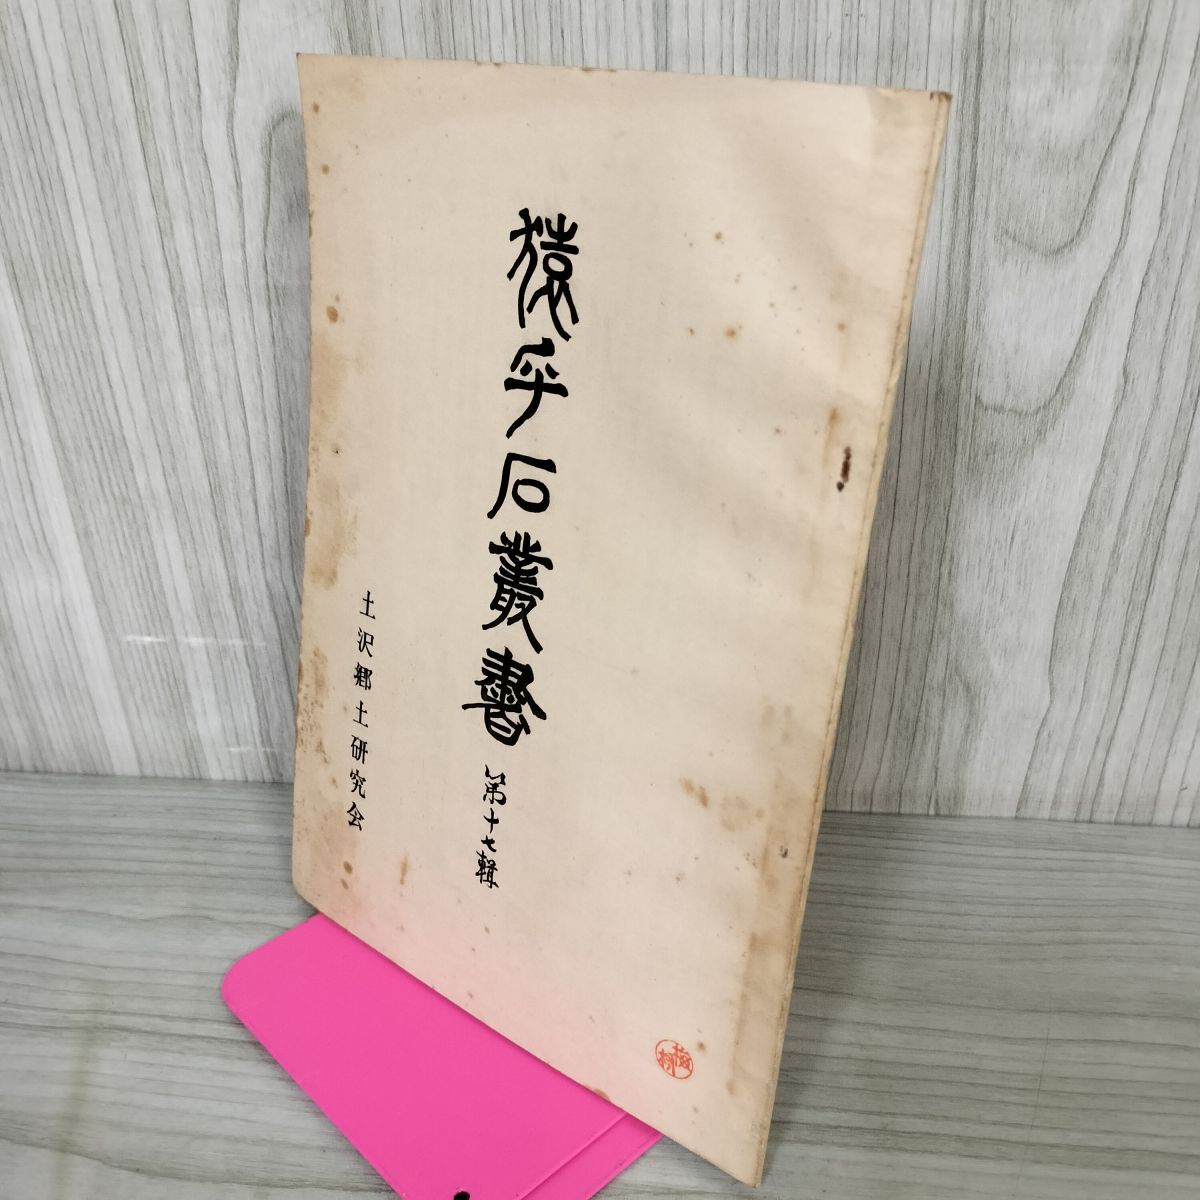 猿乎石叢書
第十七輯
土沢郷土研究会
梅村